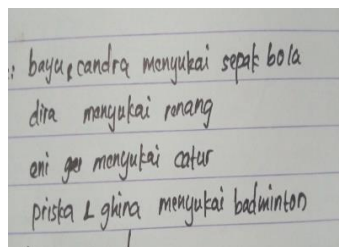 : bayu, candra menyukai sepak bola
dira menyukai renang
eni menyukai catur
priska & ghina menyukai badminton